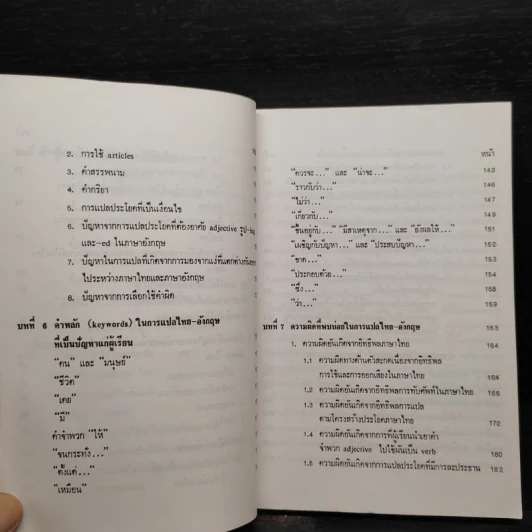 2. การใช้ articles
3. คำสรรพนาม
4. คำกริยา
5. การแปลประโยคที่เป็นเงื่อนไข
6. ปัญหาจากการแปลประโยคที่ต้องอาศัย adjective รูป -ing
และ-ed ในภาษาอังกฤษ
7. ปัญหาในการแปลที่เกิดจากการมองจากแง่ที่แตกต่างกัน
ไประหว่างภาษาไทยและภาษาอังกฤษ
8. ปัญหาจากการเลือกใช้คำผิด
บทที่ 6 คำหลัก (keywords) ในการแปลไทย-อังกฤษ
ที่เป็นปัญหาแก่ผู้เรียน
"คน" และ "มนุษย์"
"ชีวิต"
"เคย"
"มี"
คำจำพวก "ให้"
"จนกระทั่ง..."
"ตั้งแต่..."
"เหมือน"
หน้า
"ควรจะ..." และ "น่าจะ..." 143
"ราวกับว่า..." 146
"ไม่ว่า..." 147
"เกี่ยวกับ..." 149
"ขึ้นอยู่กับ..." "มีสาเหตุจาก..." และ "ยังผลให้..." 151
"เผชิญกับปัญหา..." และ "ประสบปัญหา..." 153
"ขาด..." 154
"ประกอบด้วย..." 156
"ซึ่ง..." 157
"ว่า..." 159
บทที่ 7 ความผิดที่พบบ่อยในการแปลไทย-อังกฤษ 163
1. ความผิดอันเกิดจากอิทธิพลภาษาไทย
1.1 ความผิดทางด้านตัวสะกดเนื่องจากอิทธิพล
การใช้และการออกเสียงในภาษาไทย 164
1.2 ความผิดอันเกิดจากอิทธิพลการทับศัพท์ในภาษาไทย 165
1.3 ความผิดอันเกิดจากอิทธิพลการแปล
ตามโครงสร้างประโยคภาษาไทย 172
1.4 ความผิดอันเกิดจากการที่ผู้เรียนนำเอาคำ
จำพวก adjective ไปใช้ผันเป็น verb 180
1.5 ความผิดอันเกิดจากการแปลประโยคที่มีการละประธาน 182